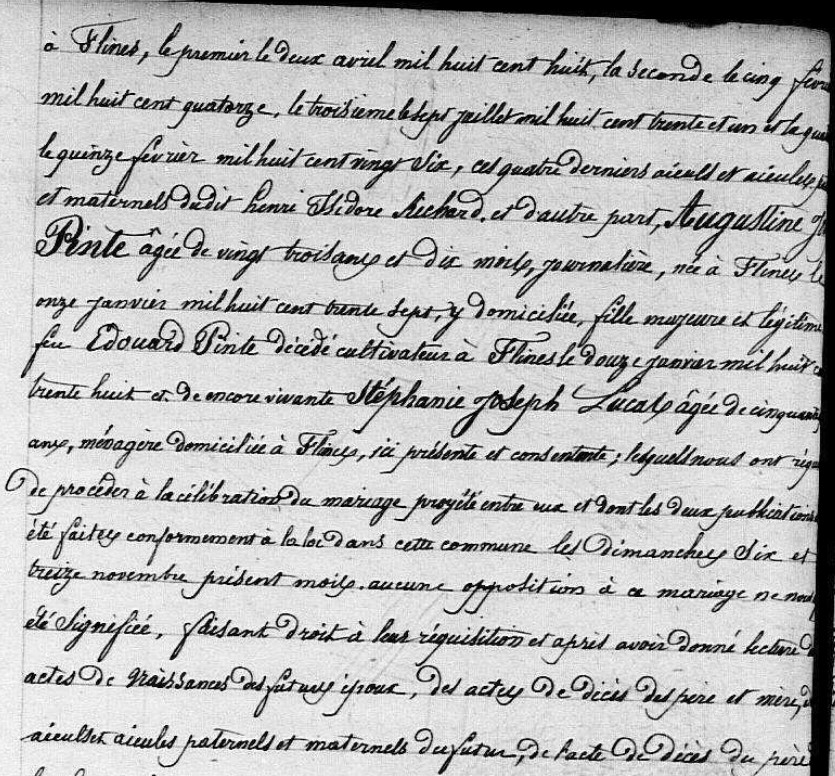 à Flines, le premier le deux avril mil huit cent huit, la seconde le cinq févr
mil huit cent quatorze, le troisieme le sept juillet mil huit cent trente et un et la qua
le quinze février mil huit cent vingt six, ces quatre derniers aïeuls et aïeules
et maternels dudit henri Isidore Richard. et d'autre part, Augustine
Pinte âgée de vingt trois ans et dix mois, journalière, née à Flines le
onze janvier mil huit cent trente sept, y domiciliée, fille majeure et légitime
feu Edouard Pinte décédé cultivateur à Flines le douze janvier mil huit c
trente huit et de encore vivante Stéphanie joseph Lucas âgée de cinquante
ans, ménagère domiciliée à Flines, ici présente et consentante; lesquels nous ont requ
de procéder à la célébration du mariage projété entre eux et dont les deux publications
été faites conformement à la loi dans cette commune les dimanches six et
treize novembre présent mois. aucune opposition à ce mariage ne nous
été signifiée, faisant droit à leur réquisition et après avoir donné lecture d
actes de naissances des futurs époux, des actes de décès des père et mère, d
aïeuls et aïeules paternels et maternels du futur, de l'acte de décès du père